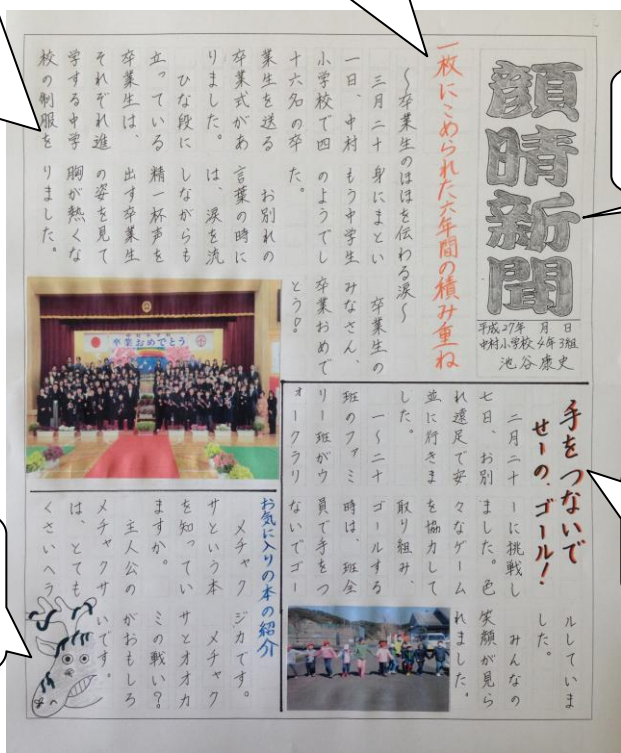 顔晴新聞
平成27年 月 日
中村小学校 4年3組
池谷康史
一枚にこめられた六年間の積み重ね
〜卒業生のほほを伝わる涙〜
三月二十
一日、中村
小学校で四
十六名の卒
業生を送る
卒業式があ
りました。
ひな段に
立っている
卒業生は、
それぞれ進
学する中学
校の制服を
身にまとい
もう中学生
のようでし
た。
お別れの
言葉の時に
は、涙を流
しながらも
精一杯声を
出す卒業生
の姿を見て
胸が熱くな
りました。
卒業生の
みなさん、
卒業おめで
とう!!
卒業おめでとう
手をつないで
せーの、ゴール!
二月二十
七日、お別
れ遠足で安
並に行きま
した。
一〜二十
班のファミ
リー班がウ
ォークラリ
ーに挑戦し
ました。色
々なゲーム
を協力して
取り組み、
ゴールする
時は、班全
員で手をつ
ないでゴー
ルしていま
した。
みんなの
笑顔が見ら
れました。
お気に入りの本の紹介
メチャク
サという本
を知ってい
ますか。
主人公の
メチャクサ
は、とても
くさいヘラ
ジカです。
メチャク
サとオオカ
ミの戦い?
がおもしろ
いです。